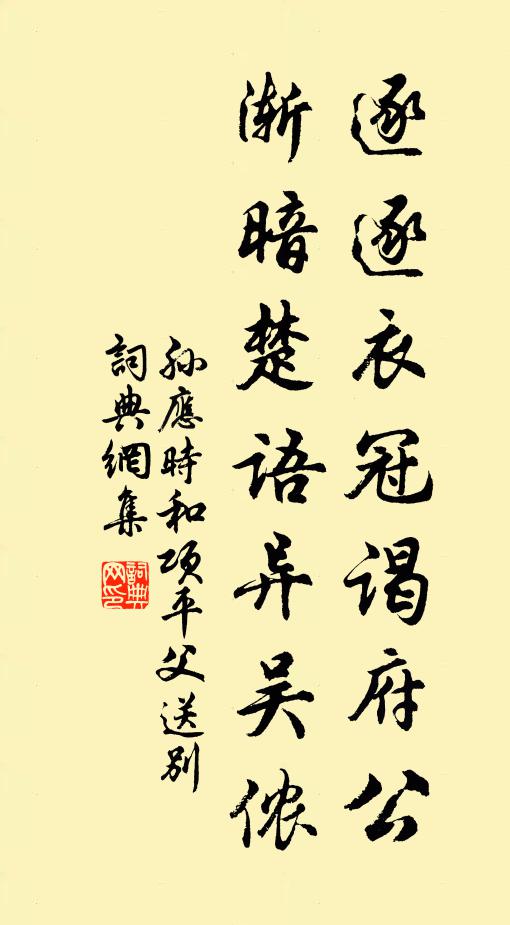 逐逐衣冠谒府公
渐暗楚语异吴侬
孫應時和项平父送别
詞典網集
詞典网印